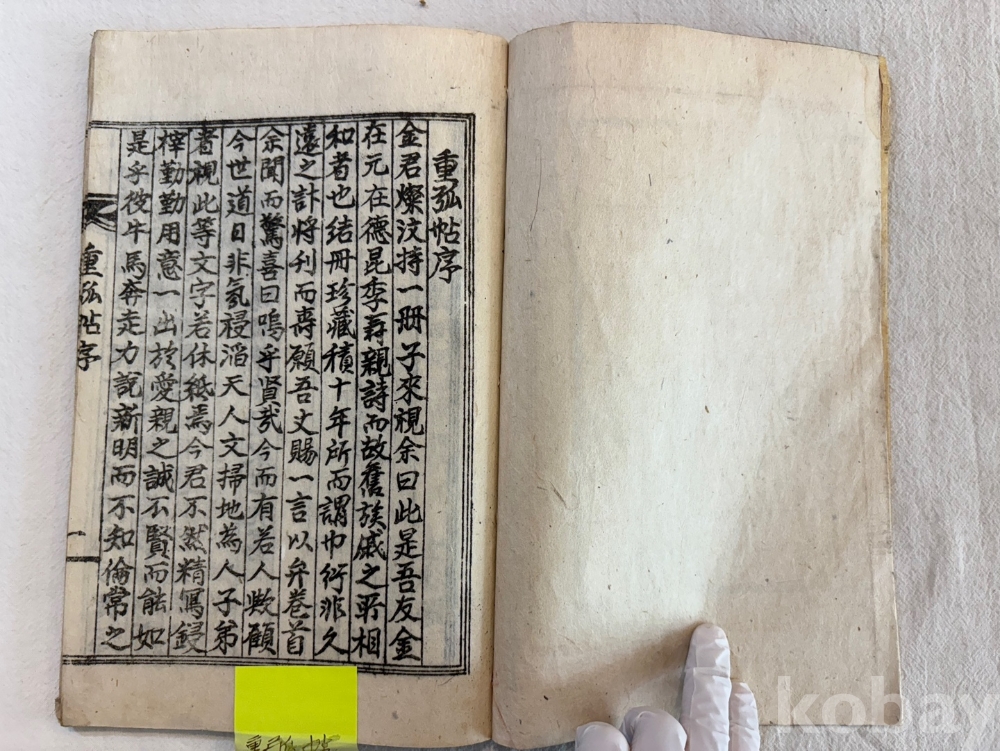 重弧帖序
金君燦汶持一冊子來視余曰此是吾友金
在元在德昆季壽親詩而故舊族戚之所相
和者也結冊珍藏積十年所而謂巾衍非久
遠之計將刊而壽願吾丈賜一言以弁卷首
余聞而驚喜曰嗚乎賢哉今而有若人歟顧
今世道日非氛祲滔天人文掃地為人子弟
者視此等文字若休紙焉今君不然精寫鋟
梓勤勤用意一出於愛親之誠不賢而能如
是乎彼牛馬奔走力說新明而不知倫常之
重弧帖序
一
重弧帖
kobay